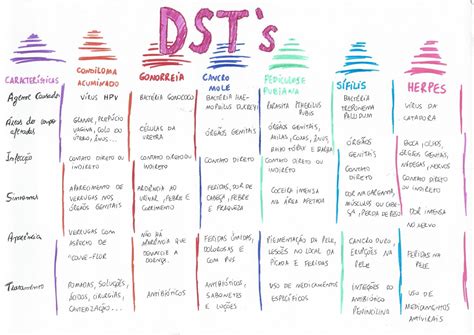 DST's
CARACTERÍSTICAS
CONDILOMA
ACUMINADO
GONORREIA
CANCRO
MOLE
PEDICULOSE
PUBIANA
SÍFILIS
HERPES
Agente Causador
VÍRUS HPV
BACTÉRIA GONOCOCO
BACTÉRIA HAE-
MOPHILUS DUCREYI
PARASITA PHTHIRUS
PUBIS
BACTÉRIA
TREPONEMA
PALLIDUM
VÍRUS DA
CATAPORA
Áreas do corpo
afetadas
GLANDE, PREPÚCIO
VAGINA, COLO DO
ÚTERO, ÂNUS...
CÉLULAS DA
URETRA
ÓRGÃOS GENITAIS
ÓRGÃOS GENITAIS,
AXILAS, COXAS, ÂNUS
BAIXO TÓRAX E BARBA
ÓRGÃOS
GENITAIS
BOCA, OLHOS,
ÓRGÃOS GENITAIS,
NÁDEGAS,
NERVOS
Infecção
CONTATO DIRETO OU
INDIRETO
CONTATO DIRETO OU
INDIRETO
CONTATO DIRETO
CONTATO DIRETO OU
INDIRETO
CONTATO DIRETO
CONTATO DIRETO
OU INDIRETO
Sintomas
APARECIMENTO DE
VERRUGAS NOS
ÓRGÃOS GENITAIS
ARDÊNCIA AO
URINAR, FEBRE E
CORRIMENTO
FERIDAS, DOR DE
CABEÇA, FEBRE
E FRAQUEZA
COCEIRA INTENSA
NA ÁREA AFETADA
DOR NA GARGANTA,
MÚSCULOS OU CABE-
ÇA, PERDA DE PESO
DOR INTENSA
NO NERVO
Aparência
VERRUGAS COM
ASPECTO DE
"COUVE-FLOR"
NÃO HÁ
APARÊNCIA QUE
DENUNCIE A
DOENÇA.
FERIDAS ÚNICAS,
DOLOROSAS E
COM PUS
PIGMENTAÇÃO DA PELE,
LESÕES NO LOCAL DA
PICADA E FERIDAS
CANCRO DURO,
ERUPÇÕES NA
PELE
FERIDAS NA
PELE
Tratamento
POMADAS, SOLUÇÕES,
ÁCIDOS, CIRURGIAS,
CAUTERIZAÇÃO...
ANTIBIÓTICOS
ANTIBIÓTICOS,
SABONETES
E LOÇÕES
USO DE MEDICAMENTOS
ESPECÍFICOS
USO DO
ANTIBIÓTICO
PENINCILINA
USO DE
MEDICAMENTOS
ANTIVIRAIS